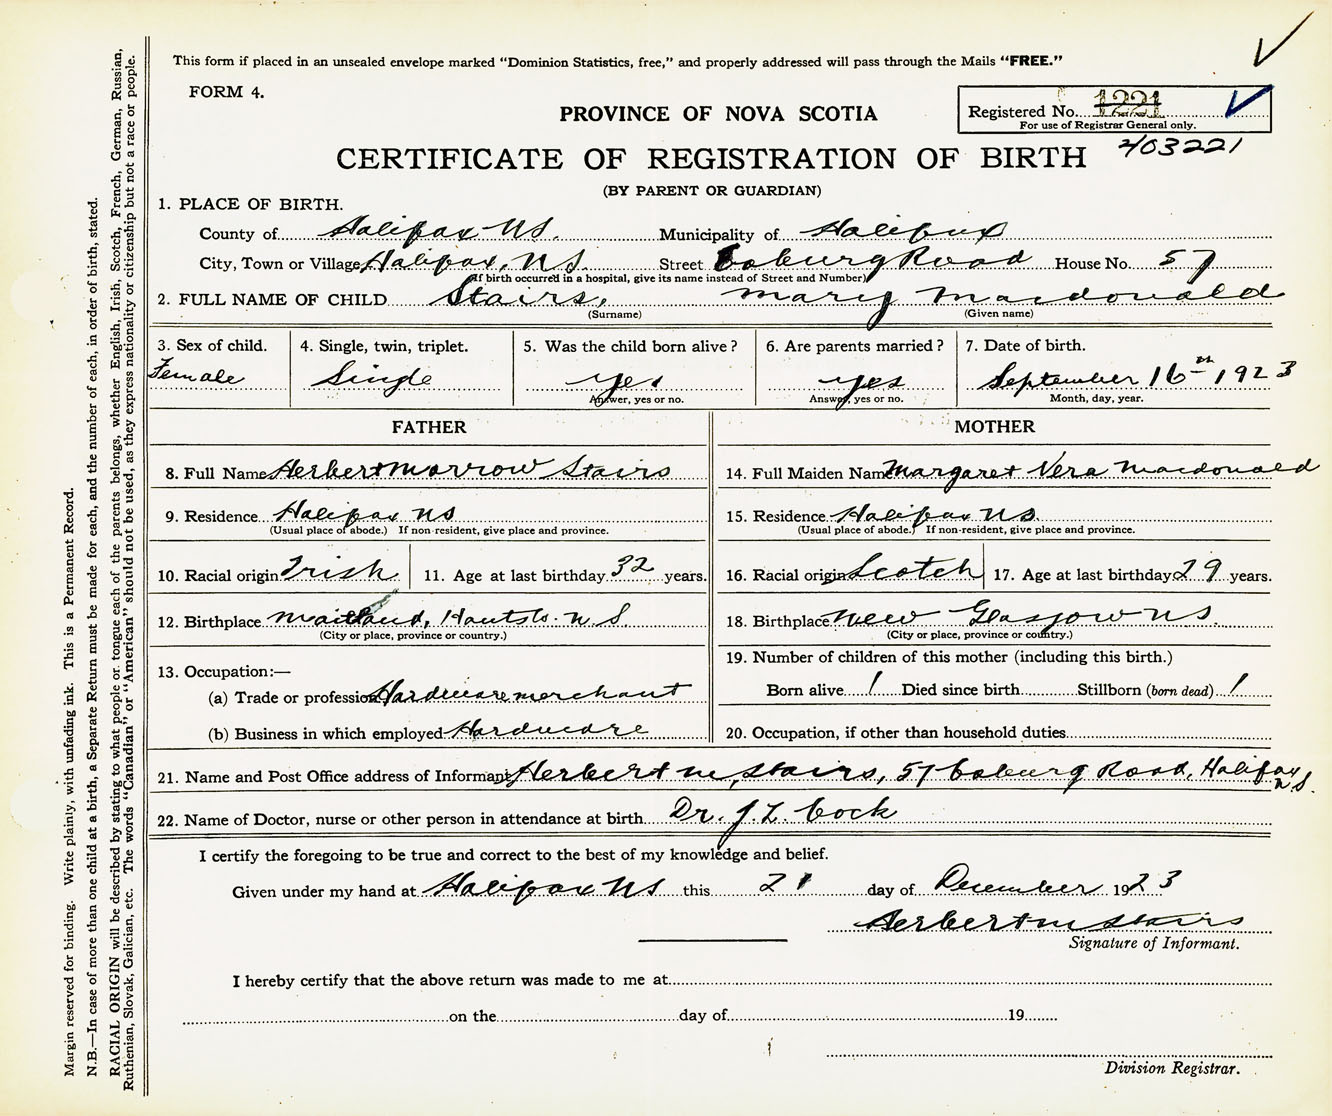 This form if placed in an unsealed envelope marked "Dominion Statistics, free," and properly addressed will pass through the Mails "FREE."
FORM 4.
PROVINCE OF NOVA SCOTIA
Registered No. 1221
For use of Registrar General only.
403221
CERTIFICATE OF REGISTRATION OF BIRTH
(BY PARENT OR GUARDIAN)
1. PLACE OF BIRTH.
County of Halifax NS. Municipality of Halifax
City, Town or Village Halifax, NS. Street Coburg Road House No. 57
(If birth occurred in a hospital, give its name instead of Street and Number)
2. FULL NAME OF CHILD Stairs, Mary Macdonald
(Surname) (Given name)
3. Sex of child. 4. Single, twin, triplet. 5. Was the child born alive? 6. Are parents married? 7. Date of birth.
Female Single yes yes September 16th 1923
Answer, yes or no. Answer, yes or no. Month, day, year.
FATHER MOTHER
8. Full Name Herbert Morrow Stairs 14. Full Maiden Name Margaret Vera Macdonald
9. Residence Halifax NS 15. Residence Halifax NS.
(Usual place of abode.) If non-resident, give place and province. (Usual place of abode.) If non-resident, give place and province.
10. Racial origin Irish 11. Age at last birthday 32 years. 16. Racial origin Scotch 17. Age at last birthday 29 years.
12. Birthplace Maitland, Hants Co. N.S 18. Birthplace New Glasgow NS.
(City or place, province or country.) (City or place, province or country.)
13. Occupation:— 19. Number of children of this mother (including this birth.)
(a) Trade or profession Hardware merchant Born alive 1 Died since birth Stillborn (born dead) 1
(b) Business in which employed Hardware 20. Occupation, if other than household duties
21. Name and Post Office address of Informant Herbert M. Stairs, 57 Coburg Road, Halifax N.S.
22. Name of Doctor, nurse or other person in attendance at birth Dr. J. L. Cock
I certify the foregoing to be true and correct to the best of my knowledge and belief.
Given under my hand at Halifax NS this 21 day of December 1923
Herbert M Stairs
Signature of Informant.
I hereby certify that the above return was made to me at
on the day of 19
Division Registrar.
Margin reserved for binding. Write plainly, with unfading ink. This is a Permanent Record.
N.B.—In case of more than one child at a birth, a Separate Return must be made for each, and the number of each, in order of birth, stated.
RACIAL ORIGIN will be described by stating to what people or tongue each of the parents belongs, whether English, Irish, Scotch, French, German, Russian,
Ruthenian, Slovak, Galician, etc. The words "Canadian" or "American" should not be used, as they express nationality or citizenship but not a race or people.